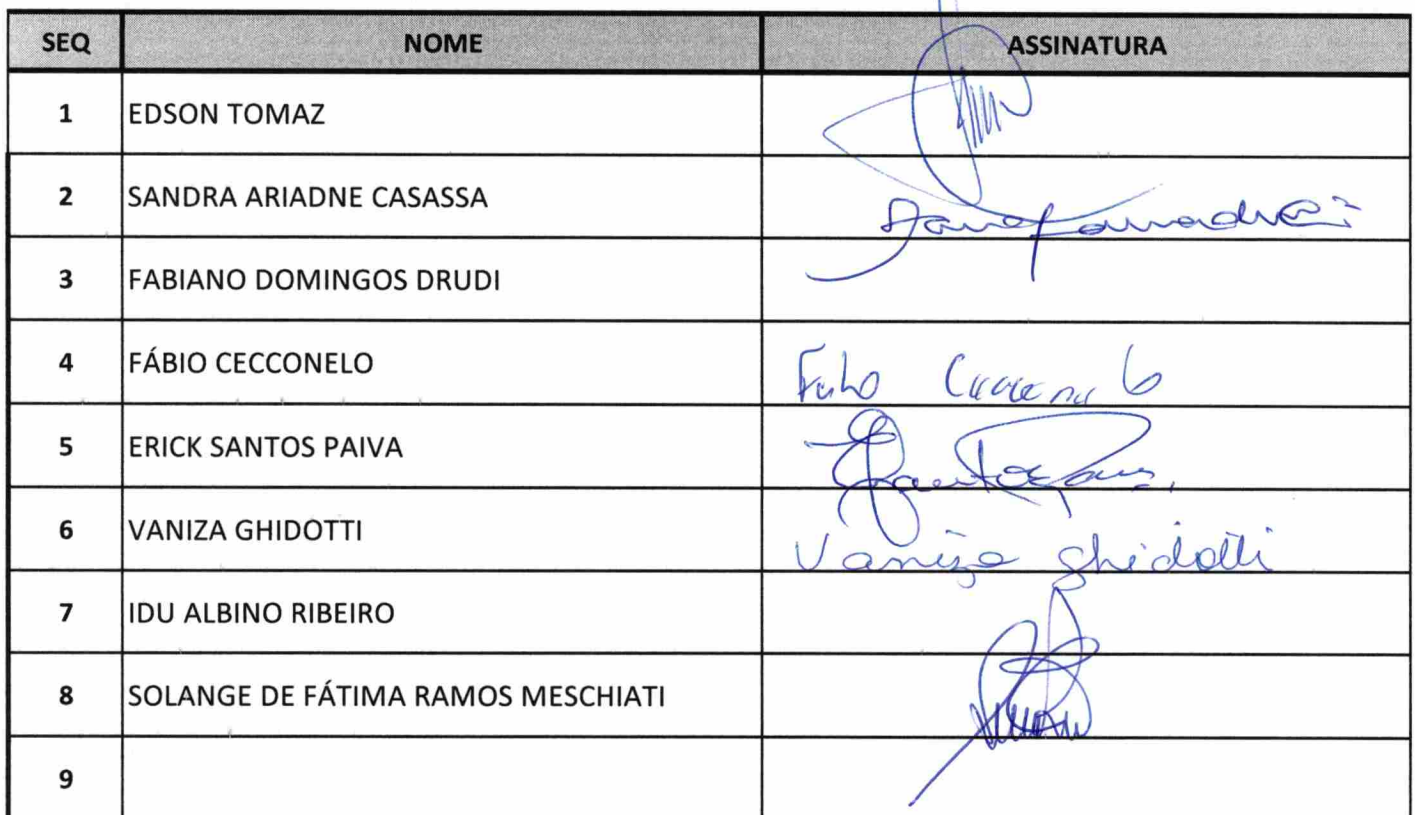 SEQ NOME ASSINATURA
1 EDSON TOMAZ
2 SANDRA ARIADNE CASASSA
3 FABIANO DOMINGOS DRUDI
4 FÁBIO CECCONELO
5 ERICK SANTOS PAIVA
6 VANIZA GHIDOTTI Vaniza Ghidotti
7 IDU ALBINO RIBEIRO
8 SOLANGE DE FÁTIMA RAMOS MESCHIATI
9